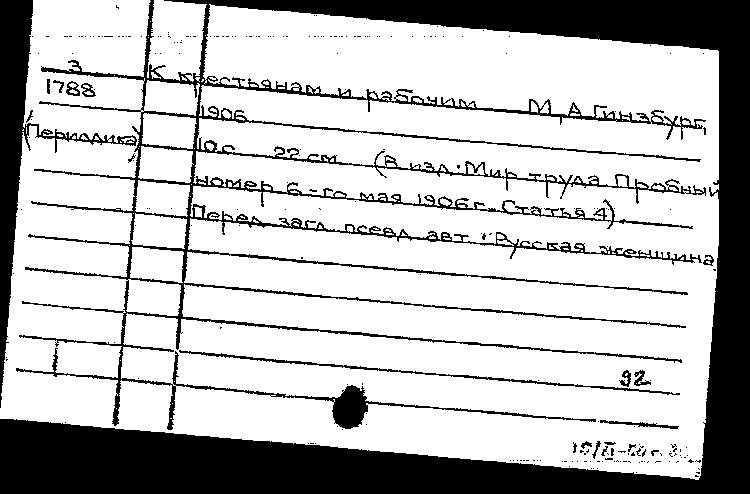 3
К крестьянам и рабочим М, А. Гинзбург,
1788
1906
(Периодика)
10 с 22 см (В изд.: Мир труда Пробный
номер 6-го мая 1906 г. Статья 4).
Перед загл псевд авт: Русская женщина
92